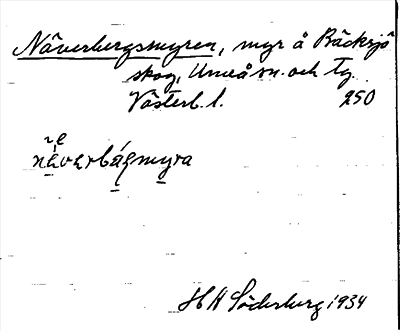 Näverbergsmyren, myr å Bäcksjö
skog, Umeå sn. och tg.
Västerb. l. 250
nèverbágmyra
H H Söderberg 1934